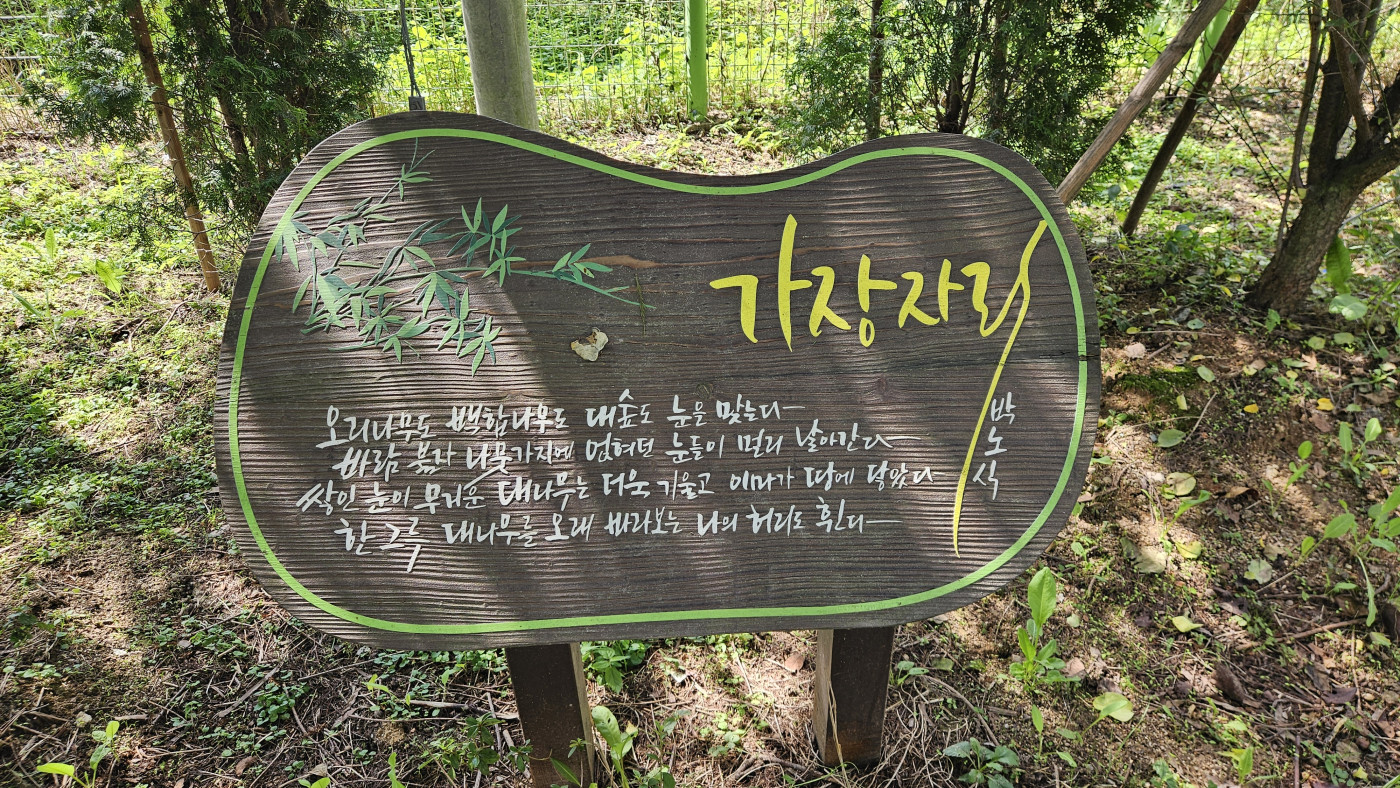 가장자리
박노식
오리나무도 백합나무도 대숲도 눈을 맞는다
바람 불자 나뭇가지에 얹혀던 눈들이 멀리 날아간다
쌓인 눈이 무거운 대나무는 더욱 기울고 이마가 땅에 닿았다
한 그루 대나무를 오래 바라보는 나의 허리도 휜다